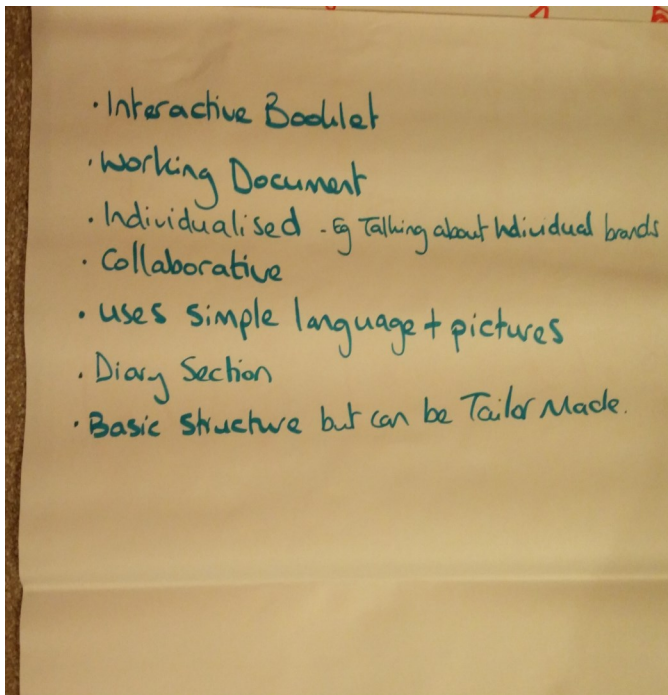 · Interactive Booklet
· Working Document
· Individualised - Eg Talking about Individual brands
· Collaborative
· uses simple language + pictures
· Diary Section
· Basic structure but can be Tailor Made.